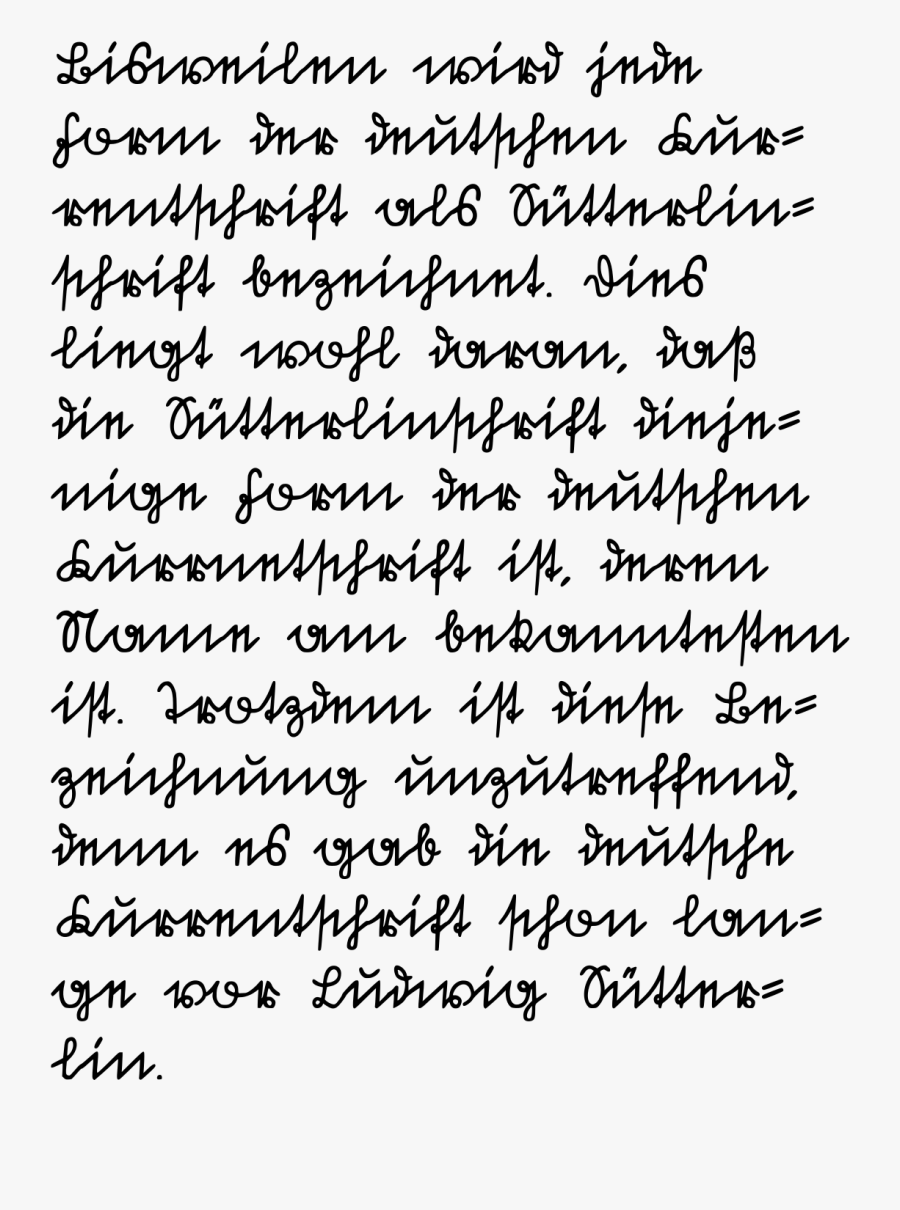 Bisweilen wird jede
Form der deutschen Kur=
rentschrift als Sütterlin=
schrift bezeichnet. Dies
liegt wohl daran, daß
die Sütterlinschrift dieje=
nige Form der deutschen
Kurrnetschrift ist, deren
Name am bekanntesten
ist. Trotzdem ist diese Be=
zeichnung unzutreffend,
denn es gab die deutsche
Kurrentschrift schon lan=
ge vor Ludwig Sütter=
lin.